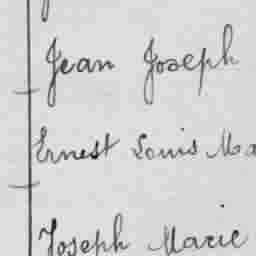 Jean Joseph
Ernest Louis Ma
Joseph Marie